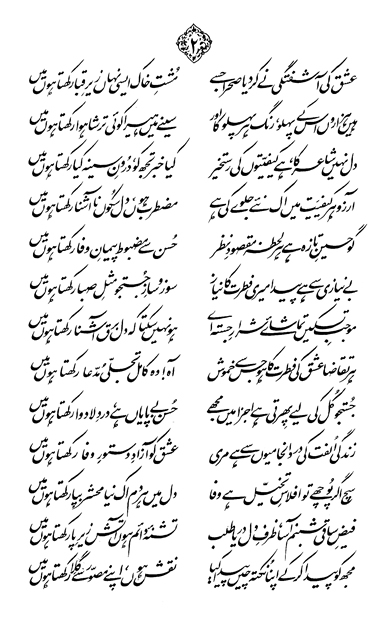 ۲
عشق کی آشفتگی نے کر دیا صحرا جسے
مُشتِ خاک ایسی نہاں زیرِ قبا رکھتا ہوں میں
ہیں ہزاروں اس کے پہلو، رنگ ہر پہلو کا اور
سینے میں ہیرا کوئی ترشا ہوا رکھتا ہوں میں
دل نہیں شاعر کا، ہے کیفیتوں کی رستخیز
کیا خبر تجھ کو، درُونِ سینہ کیا رکھتا ہوں میں
آرزو ہر کیفیت میں اک نئے جلوے کی ہے
مضطرب ہوں، دل سکُوں ناآشنا رکھتا ہوں میں
گو حسینِ تازہ ہے ہر لحظہ مقصودِ نظر
حُسن سے مضبوط پیمانِ وفا رکھتا ہوں میں
بے نیازی سے ہے پیدا میری فطرت کا نیاز
سوز و سازِ جُستجو مثلِ صبا رکھتا ہوں میں
موجبِ تسکیں تماشائے شرارِ جستہ اے
ہو نہیں سکتا کہ دل برق آشنا رکھتا ہوں میں
ہر تقاضا عشق کی فطرت کا ہو جس سے خموش
آہ! وہ کامل تجلّی مُدّعا رکھتا ہوں میں
جُستجو کُل کی لیے پھرتی ہے اجزا میں مجھے
حُسن بے پایاں ہے، دردِ لادوا رکھتا ہوں میں
زندگی اُلفت کی درد انجامیوں سے ہے مری
عشق کو آزادِ دستورِ وفا رکھتا ہوں میں
سچ اگر پُوچھے تو افلاسِ تخیّل ہے وفا
دل میں ہر دم اک نیا محشر بپا رکھتا ہوں میں
فیضِ ساقی شبنم آسا، ظرفِ دل دریا طلب
تشنۂ دائم ہوں آتش زیرِ پا رکھتا ہوں میں
مجھ کو پیدا کر کے اپنا نکتہ چیں پیدا کیا
نقش ہوں، اپنے مصوّر سے گلا رکھتا ہوں میں